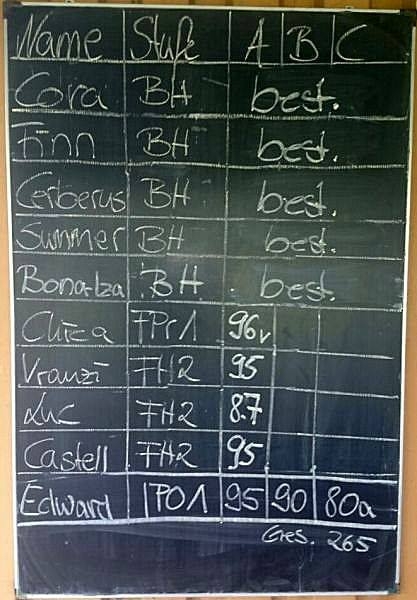 Name Stufe A B C
Cora BH best.
Finn BH best.
Cerberus BH best.
Summer BH best.
Bonanza BH best.
Chica FPr1 96v
Vranzi FH2 95
Luc FH2 87
Castell FH2 95
Edward IPO1 95 90 80a
Ges. 265